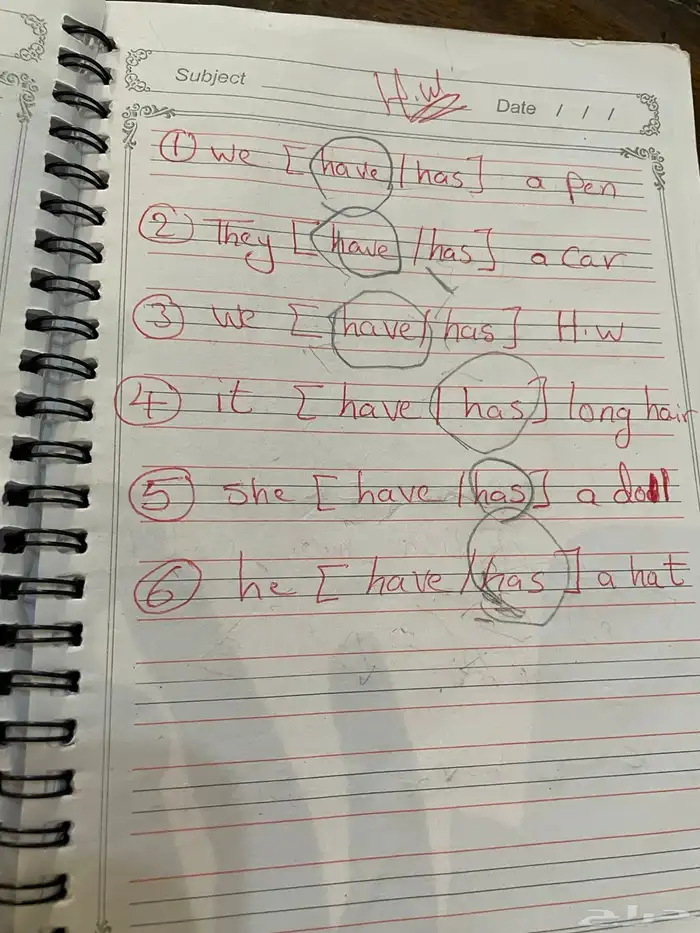 Subject H.W Date / / /
① We [have / has] a pen
② They [have / has] a car
③ We [have / has] H.W
④ it [have / has] long hair
⑤ she [have / has] a doll
⑥ he [have / has] a hat